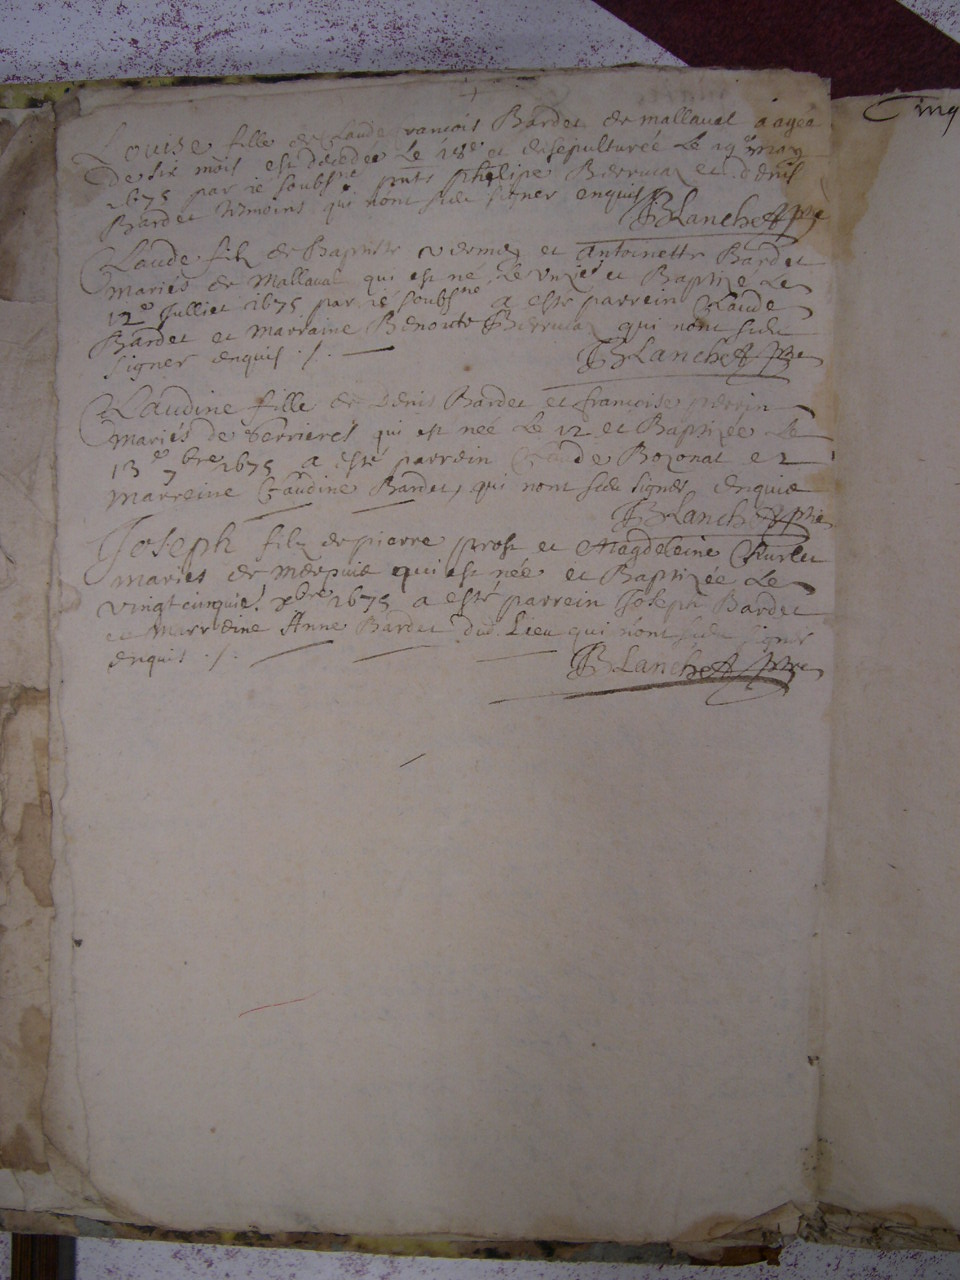 Louise fille de Claude francois Bardet de mallaval aagéa
de six mois est décedée le 18e et desepulturée le 19e may
1675 par ie soubsne pnts Phelipe et denis
Bardet temoins qui nont sceu signer enquis BLanchet ptre
Claude filz de Baptiste et Antoinette Bardet
mariés de Mallaval qui est né le unze et Baptize le
12e Julliet 1675 par ié soubsne a esté parrein Claude
Bardet et marraine Benoite qui nont sceu
signer enquis ./. BLanchet ptre
Claudine fille de denis Bardet et francoise perrin
mariés de ferrieres qui est née le 12 et Baptizée le
13e 7bre 1675 a esté parrein Claude Bozonat et
marreine Claudine Bardet, qui nont sceu signer enquis
BLanchet ptre
Joseph filz de pierre prost et Magdeleine
mariés de qui est née et Baptizée le
vingtcinquie. xbre 1675 a esté parrein Joseph Bardet
et marreine Anne Bardet dud. Lieu qui nont sceu signer
enquis ./. BLanchet ptre
Cinq